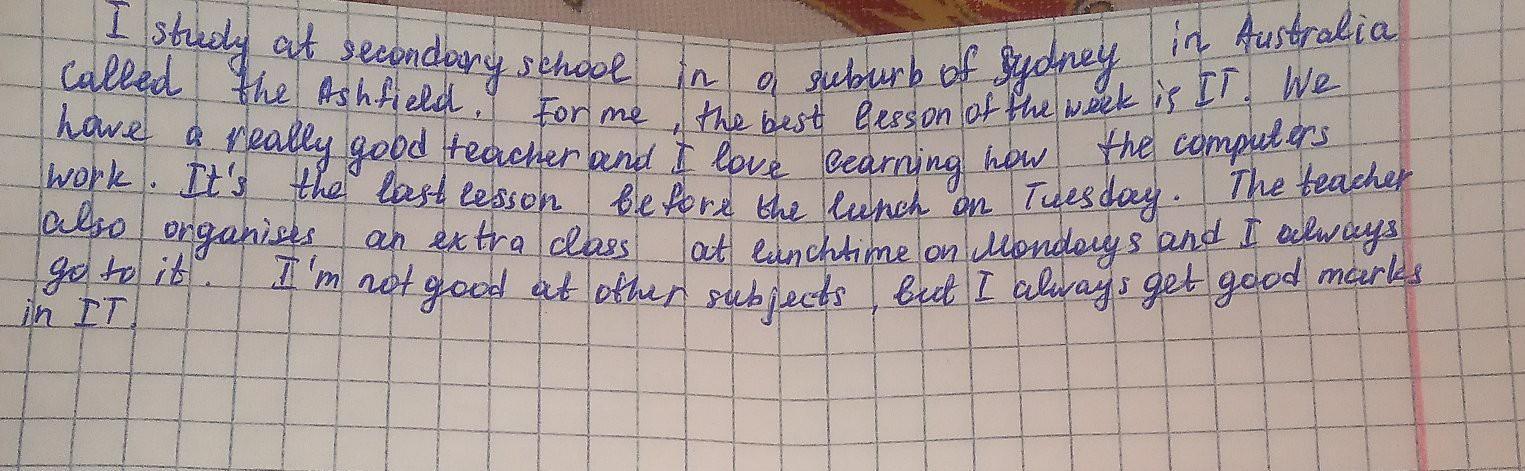 I study at secondary school in a suburb of Sydney in Australia
called the Ashfield. For me, the best lesson of the week is IT. We
have a really good teacher and I love learning how the computers
work. It's the last lesson before the lunch on Tuesday. The teacher
also organises an extra class at lunchtime on Mondays and I always
go to it. I'm not good at other subjects, but I always get good marks
in IT.